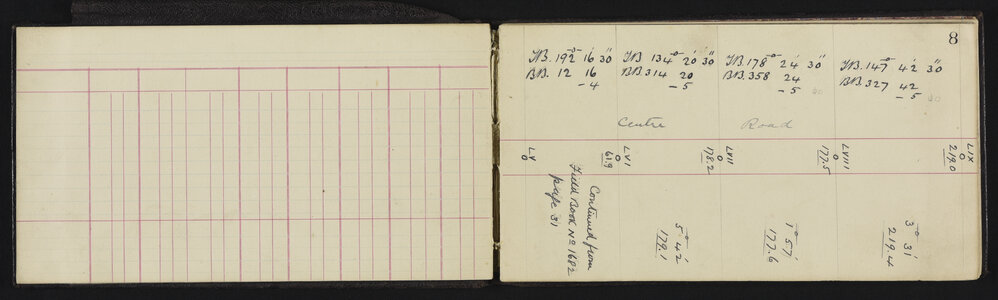 8
FB. 192° 16' 30"
BB. 12 16
- 4
FB 134° 20' 30"
BB 314 20
- 5
FB. 178° 24' 30"
BB. 358 24
- 5 30
FB. 147° 42' 30"
BB. 327 42
- 5 30
Centre Road
LV
O
LVI
O
61.9
LVII
O
178.2
LVIII
O
177.5
LIX
O
219.0
Continued from
Field Book No 1682
page 31
5° 42'
179.1
1° 57'
177.6
3° 31'
219.4